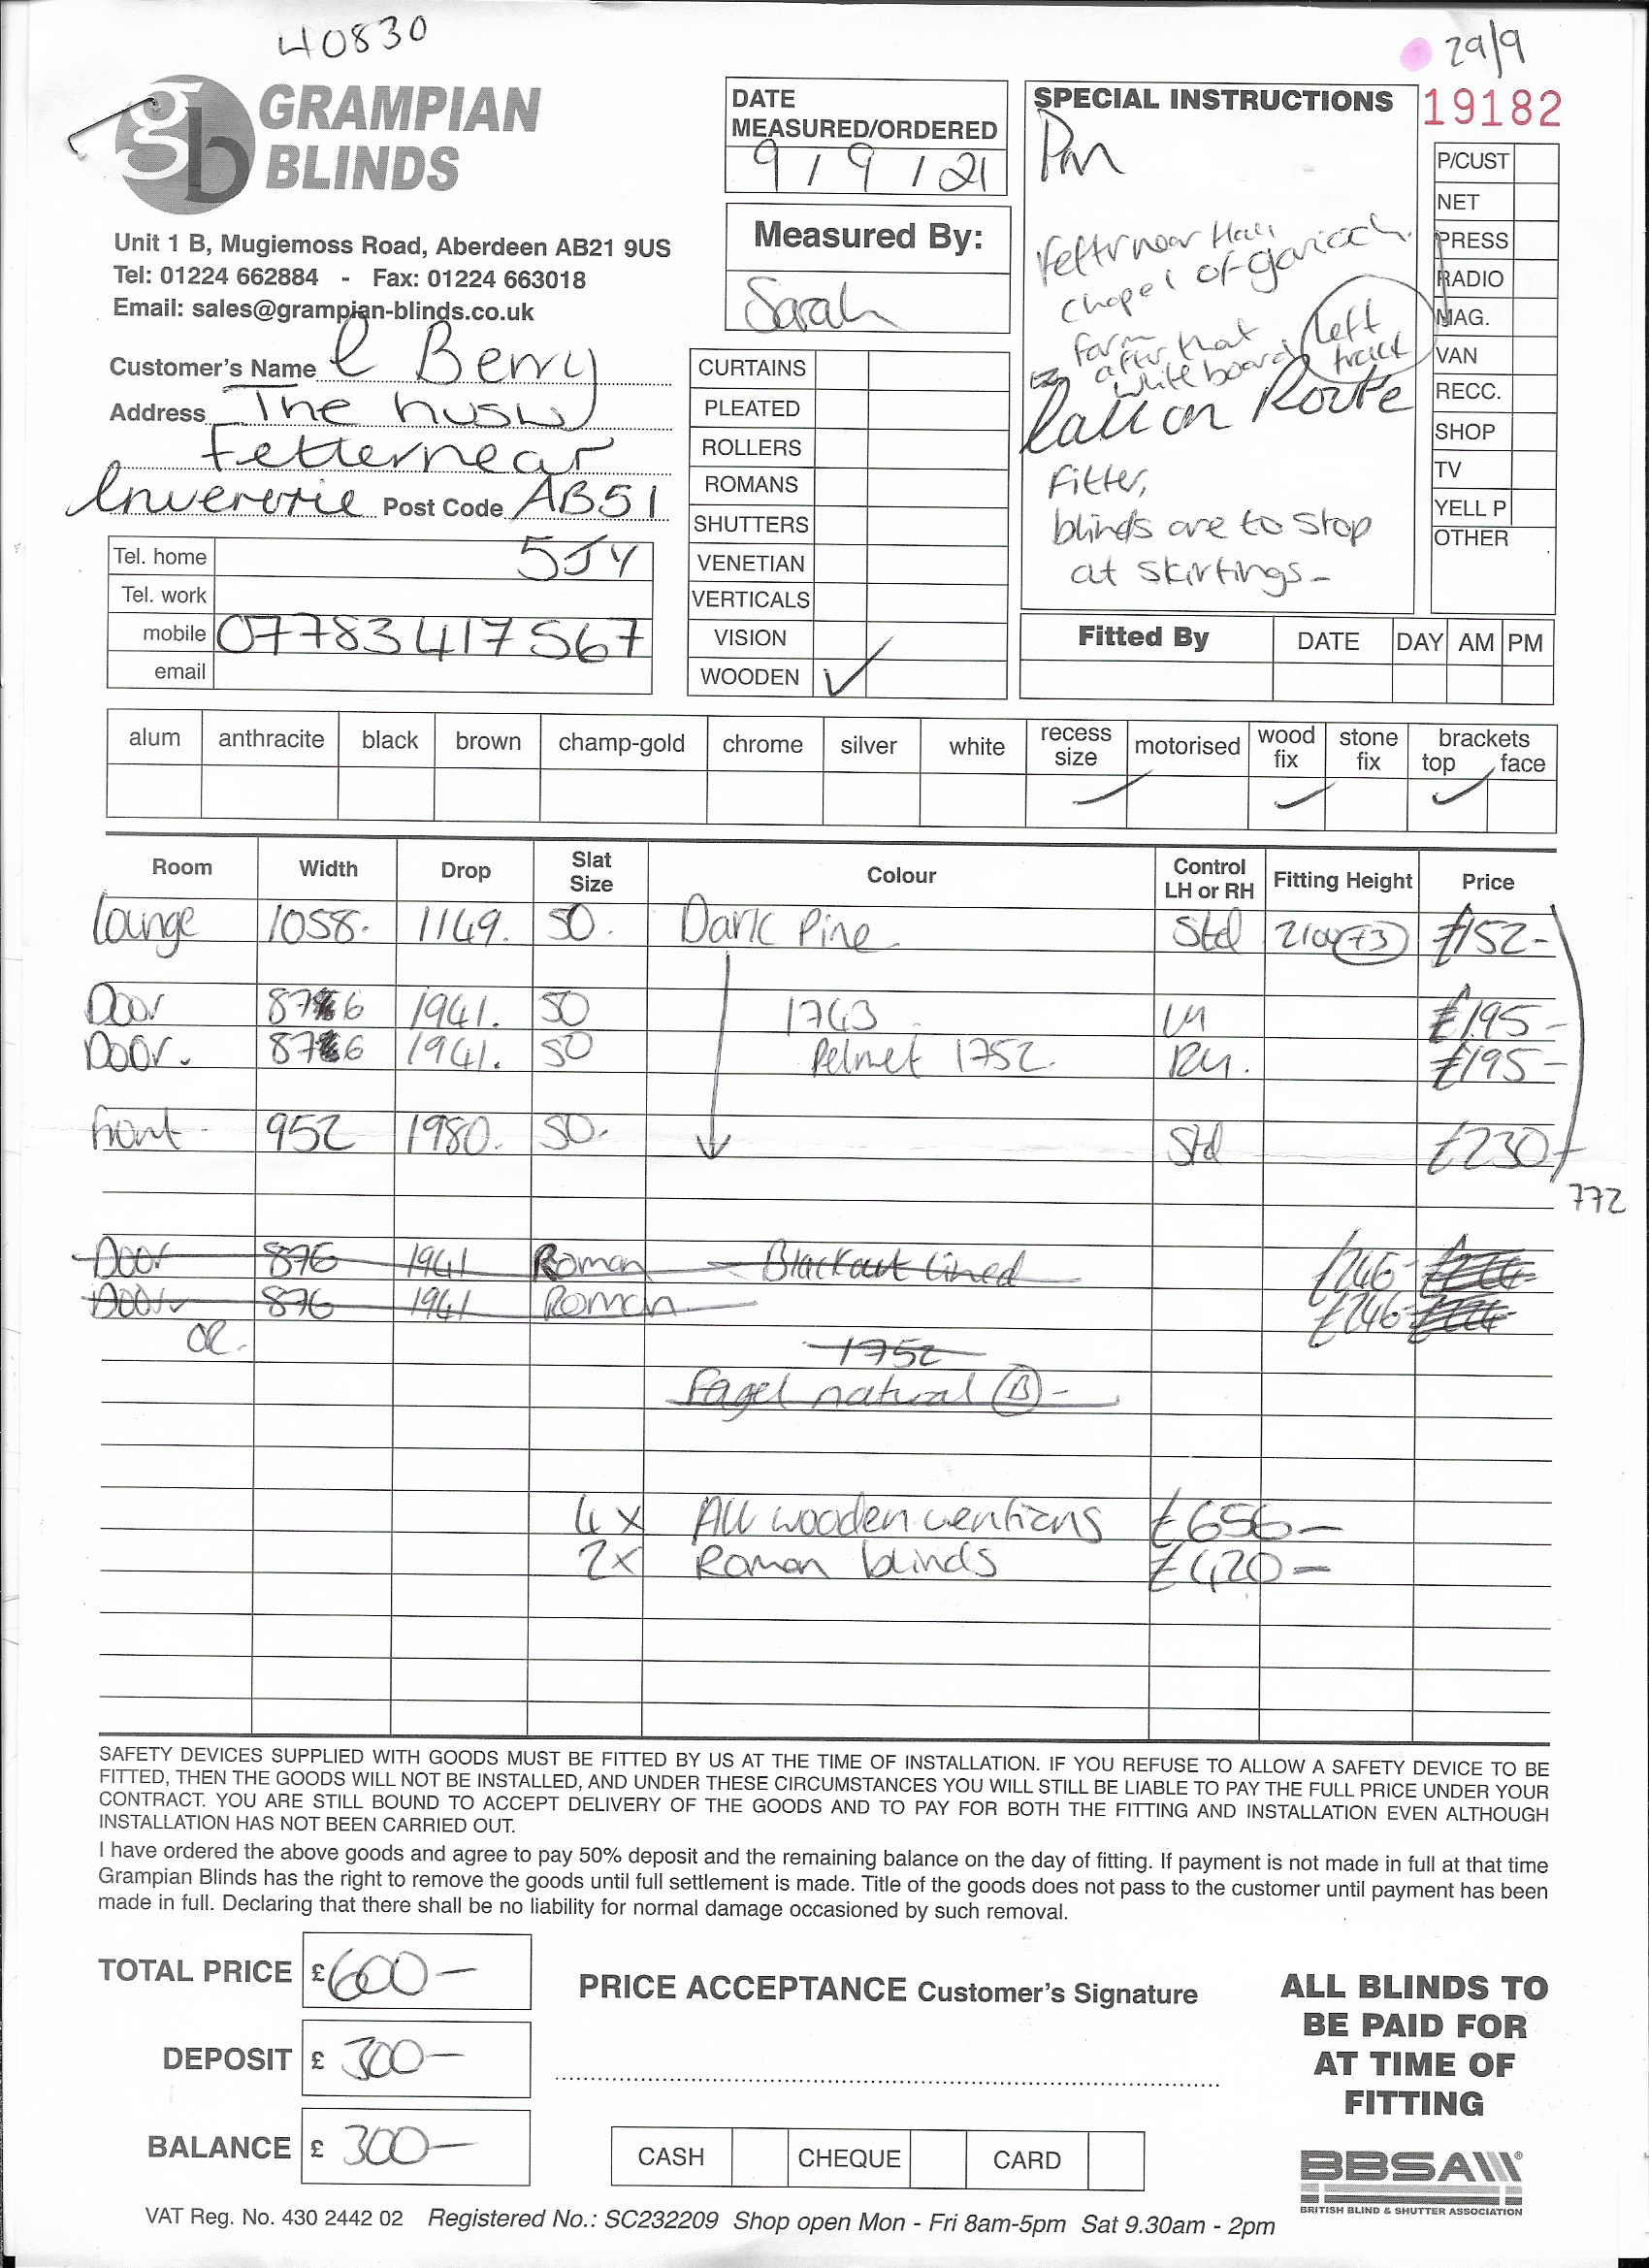 40830
29/9
GRAMPIAN
BLINDS
Unit 1 B, Mugiemoss Road, Aberdeen AB21 9US
Tel: 01224 662884 - Fax: 01224 663018
Email: sales@grampian-blinds.co.uk
Customer's Name Berry
Address The
Fetternear
Post Code AB51
5JY
Tel. home
Tel. work
mobile 07783417567
email
DATE
MEASURED/ORDERED
9/9/21
Measured By:
Sarah
CURTAINS
PLEATED
ROLLERS
ROMANS
SHUTTERS
VENETIAN
VERTICALS
VISION
WOODEN ✓
SPECIAL INSTRUCTIONS
Pm
chapel of
farm
after that
white board left
track
Call on Route
Fitter,
blinds are to stop
at skirtings-
19182
P/CUST
NET
PRESS
RADIO
MAG.
VAN
RECC.
SHOP
TV
YELL P
OTHER
Fitted By DATE DAY AM PM
alum anthracite black brown champ-gold chrome silver white recess size motorised wood fix stone fix brackets top face
✓ ✓ ✓
Room Width Drop Slat Size Colour Control LH or RH Fitting Height Price
lounge 1058. 1149. 50. Dark Pine- Std £152-
Door 876 1941. 50 1763 LH £195-
Door. 876 1941. 50 Pelmet 1752. RH. £195-
front 952 1980. 50. Std £230-
772
Door 876 1941 Roman - Blackout lined £246-
Door 876 1941 Roman £246-
OR.
1752
natural (B) -
4 x All wooden £656-
2x Roman blinds £420-
SAFETY DEVICES SUPPLIED WITH GOODS MUST BE FITTED BY US AT THE TIME OF INSTALLATION. IF YOU REFUSE TO ALLOW A SAFETY DEVICE TO BE
FITTED, THEN THE GOODS WILL NOT BE INSTALLED, AND UNDER THESE CIRCUMSTANCES YOU WILL STILL BE LIABLE TO PAY THE FULL PRICE UNDER YOUR
CONTRACT. YOU ARE STILL BOUND TO ACCEPT DELIVERY OF THE GOODS AND TO PAY FOR BOTH THE FITTING AND INSTALLATION EVEN ALTHOUGH
INSTALLATION HAS NOT BEEN CARRIED OUT.
I have ordered the above goods and agree to pay 50% deposit and the remaining balance on the day of fitting. If payment is not made in full at that time
Grampian Blinds has the right to remove the goods until full settlement is made. Title of the goods does not pass to the customer until payment has been
made in full. Declaring that there shall be no liability for normal damage occasioned by such removal.
TOTAL PRICE £600-
DEPOSIT £ 300-
BALANCE £ 300-
PRICE ACCEPTANCE Customer's Signature
CASH CHEQUE CARD
ALL BLINDS TO
BE PAID FOR
AT TIME OF
FITTING
BBSA
BRITISH BLIND & SHUTTER ASSOCIATION
VAT Reg. No. 430 2442 02 Registered No.: SC232209 Shop open Mon - Fri 8am-5pm Sat 9.30am - 2pm